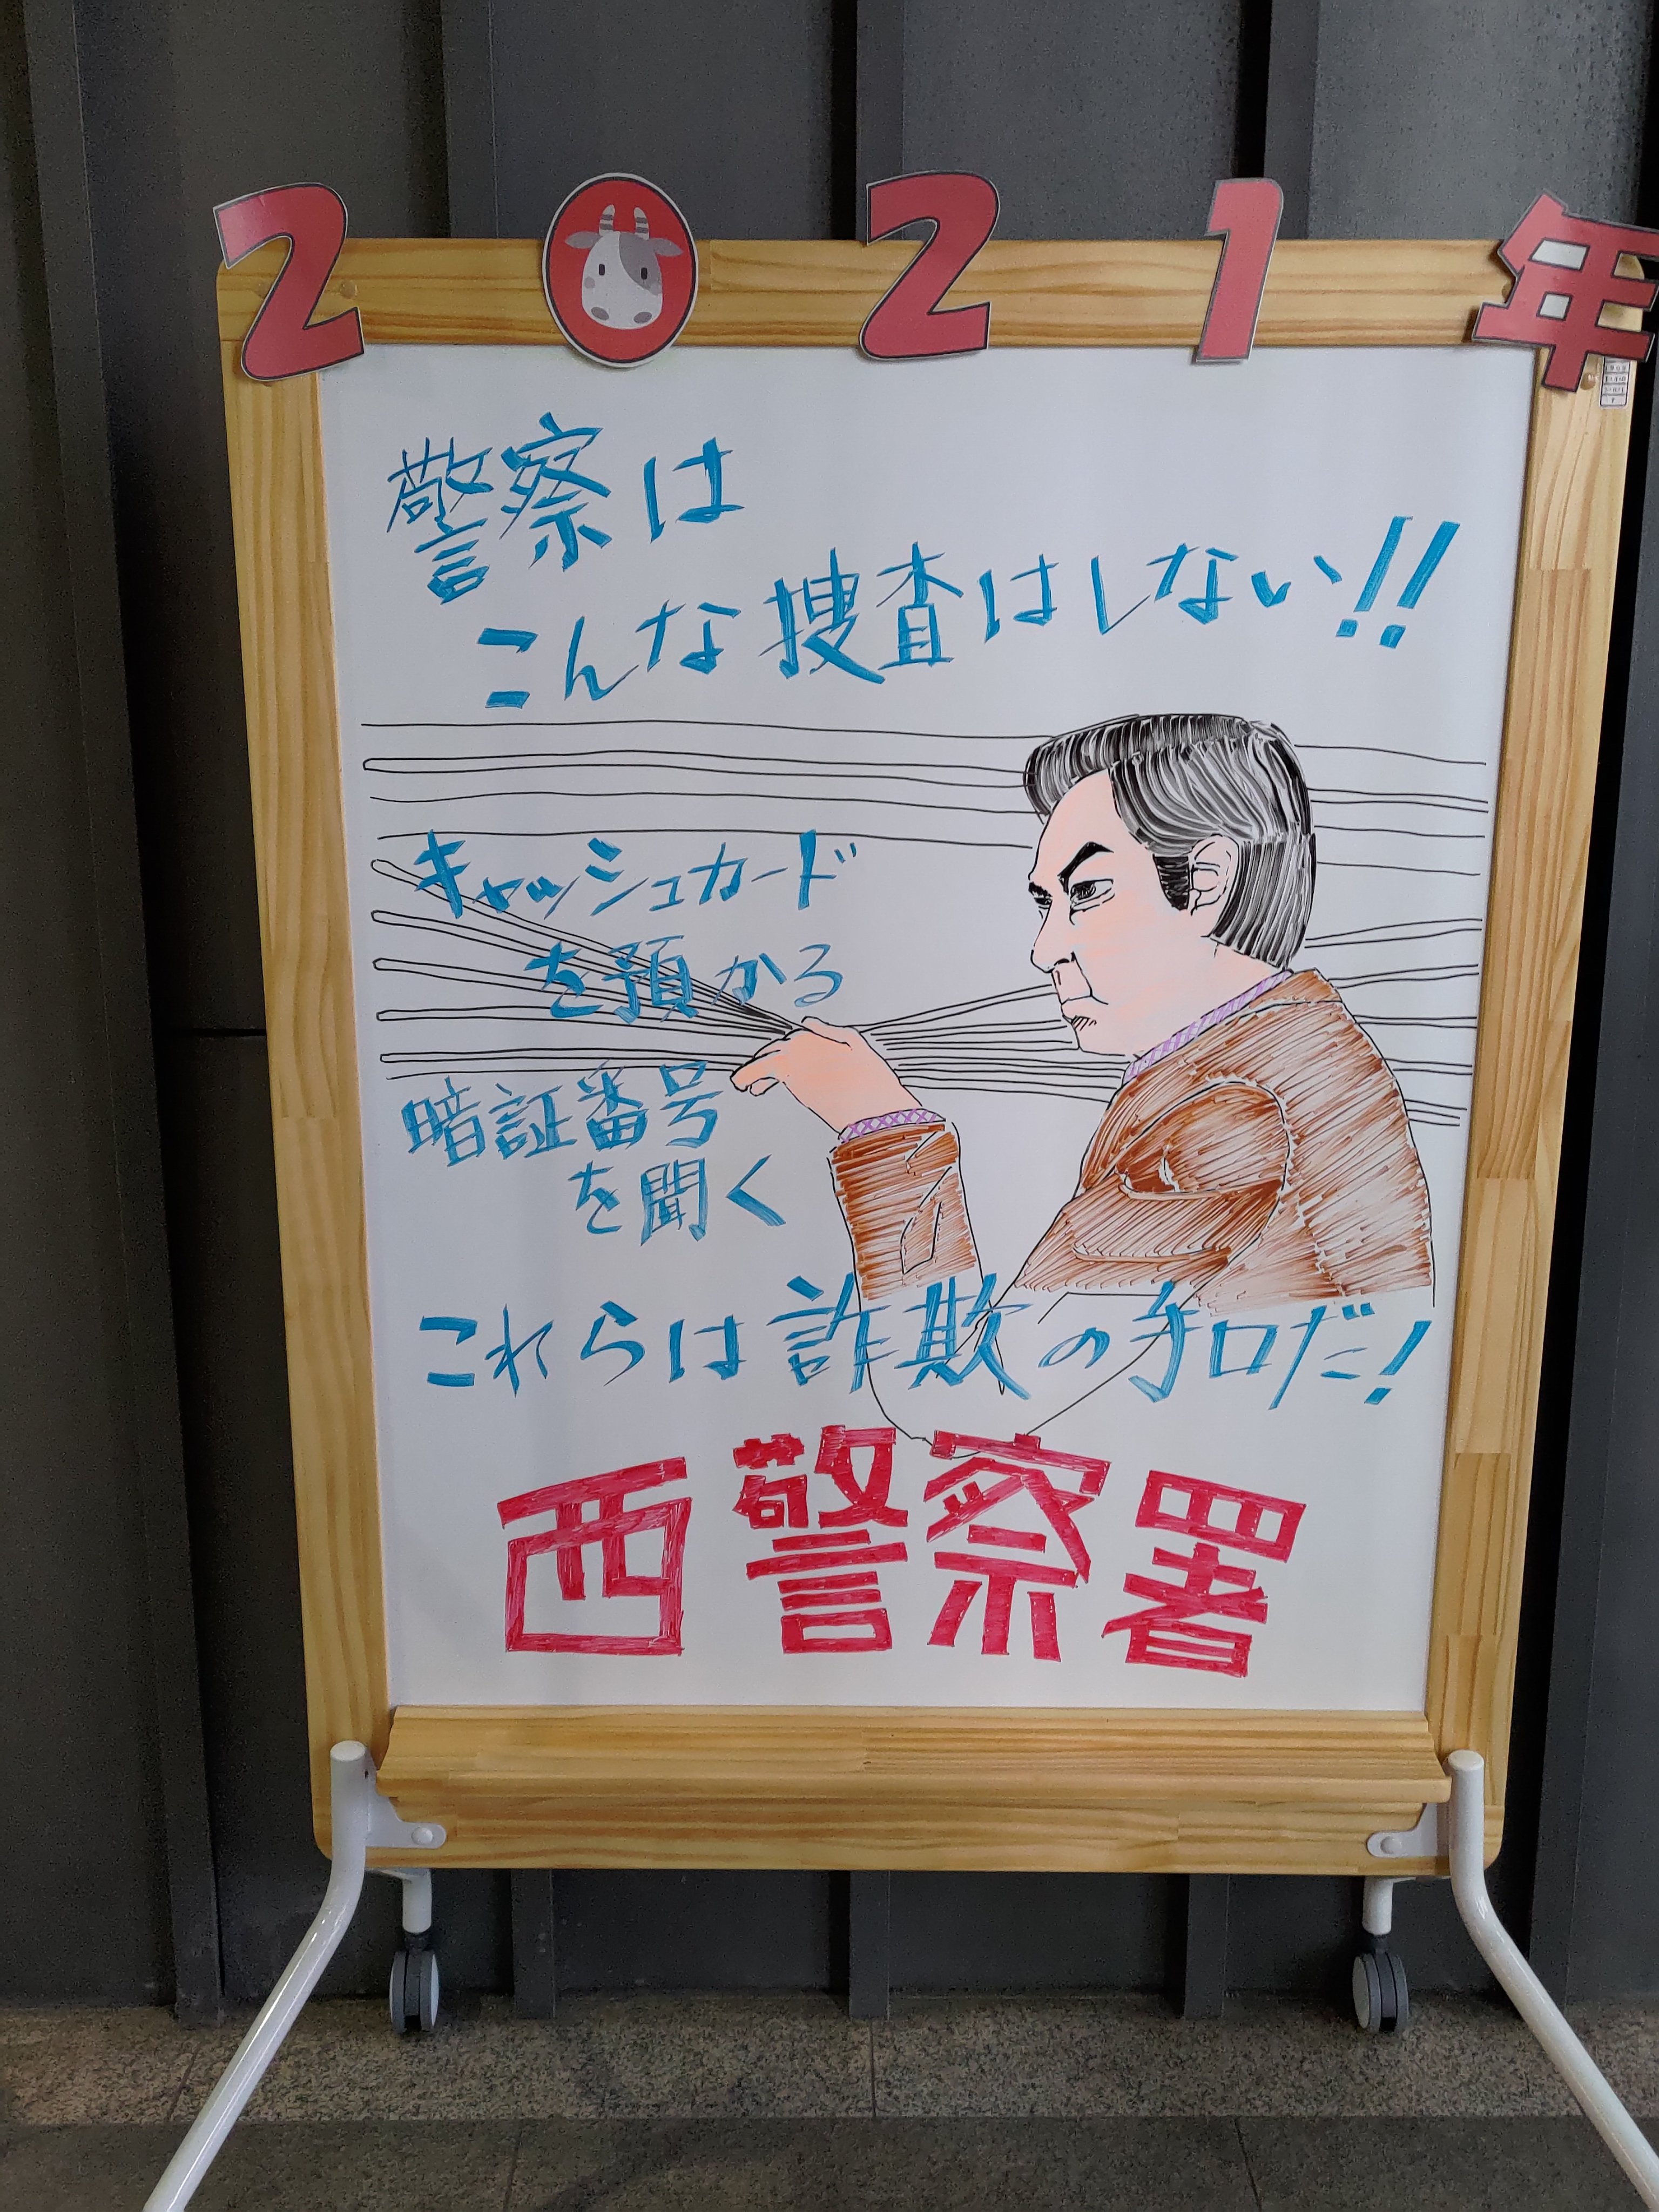 2021年
警察は
こんな捜査はしない!!
キャッシュカード
を預かる
暗証番号
を聞く
これらは詐欺の手口だ!
西警察署